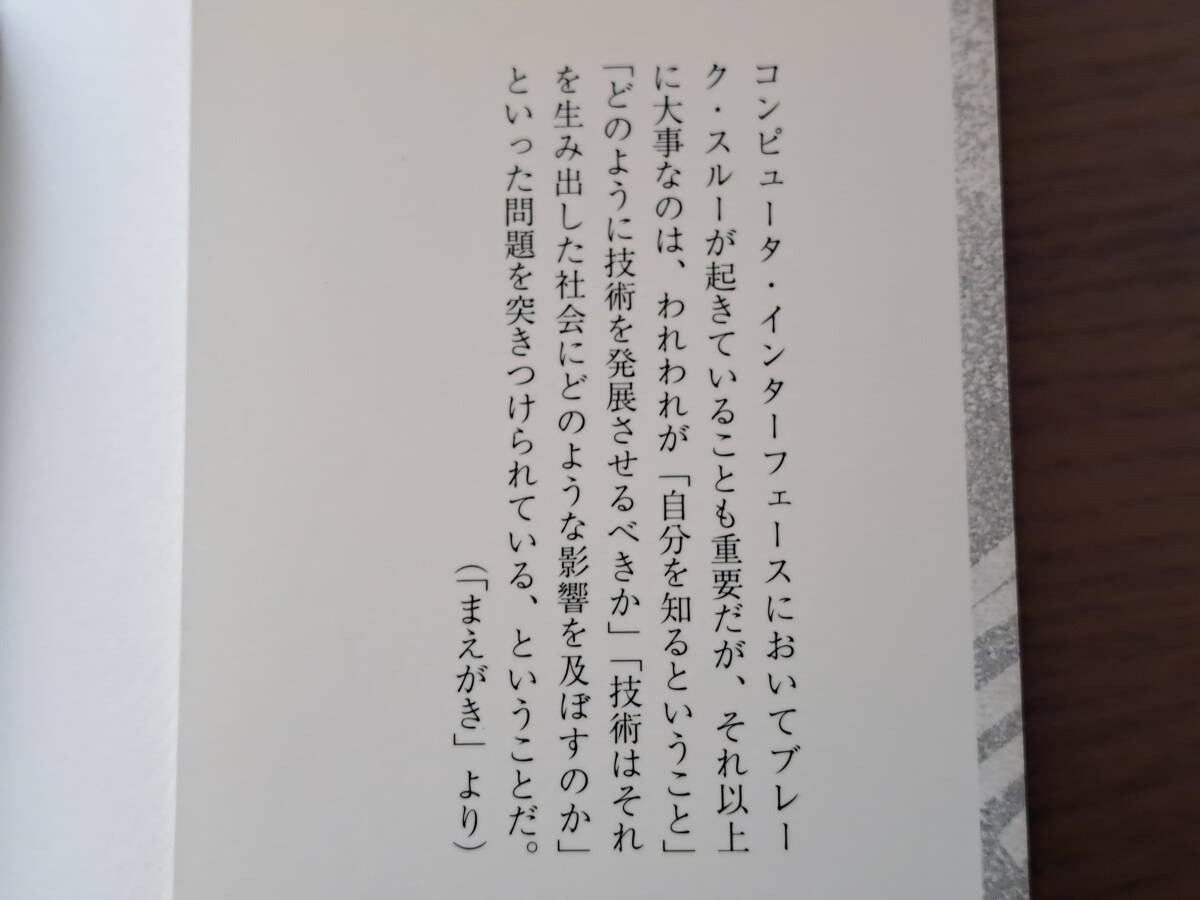 コンピュータ・インターフェースにおいてブレー
ク・スルーが起きていることも重要だが、それ以上
に大事なのは、われわれが「自分を知るということ」
「どのように技術を発展させるべきか」「技術はそれ
を生み出した社会にどのような影響を及ぼすのか」
といった問題を突きつけられている、ということだ。
（「まえがき」より）